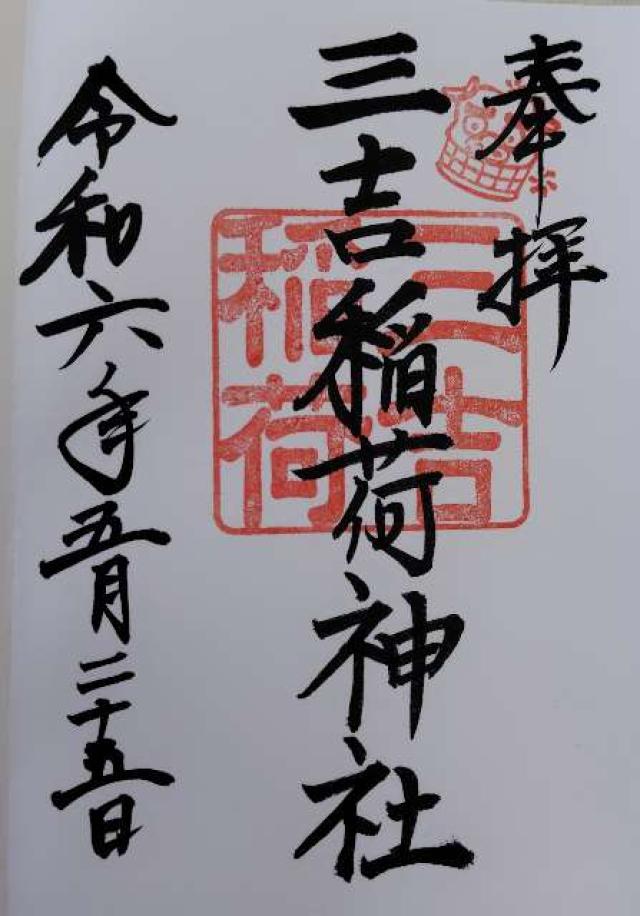 奉拝
三吉稲荷神社
三吉
稲荷
令和六年五月二十五日